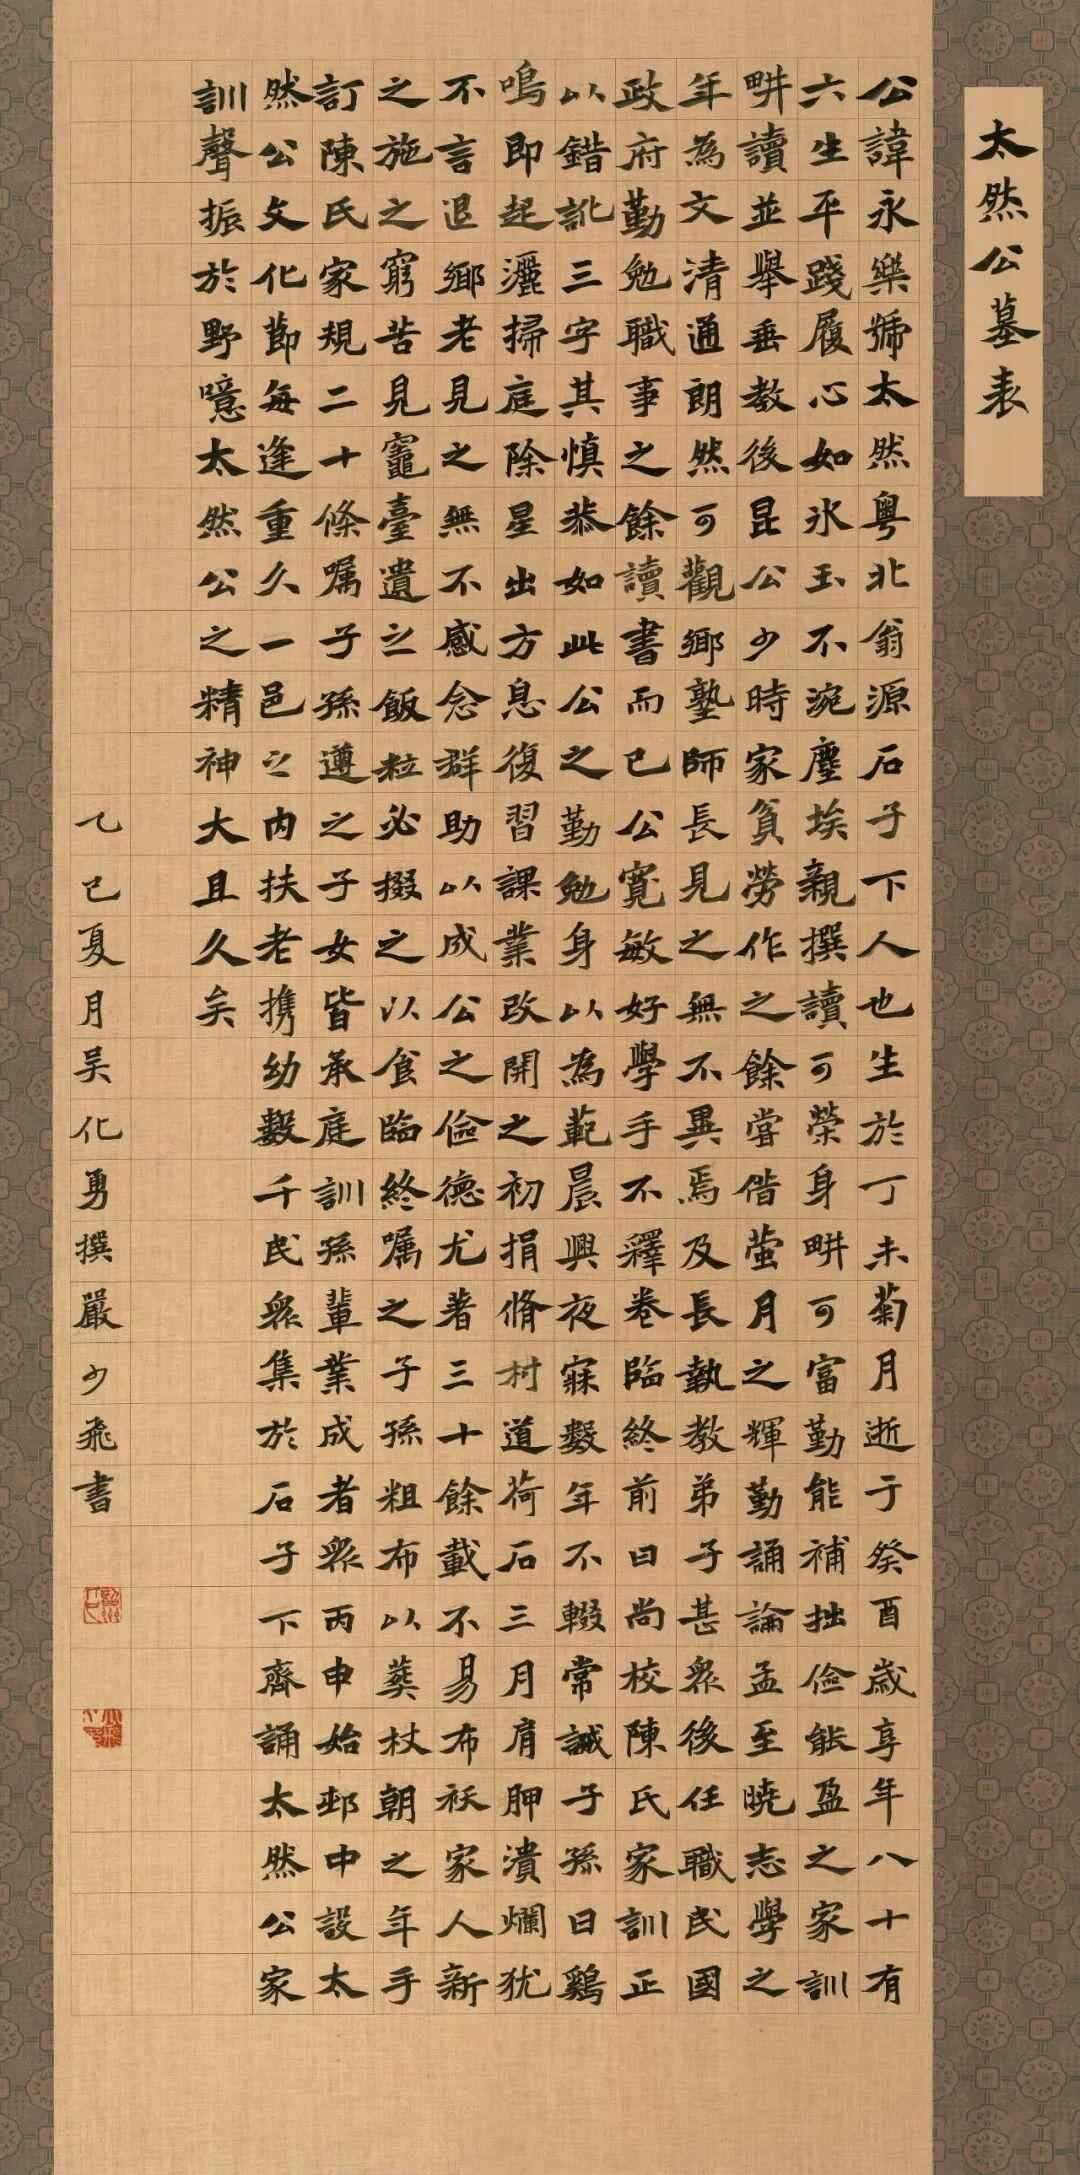 太然公墓表
公諱永樂號太然粵北翁源石子下人也生於丁未菊月逝于癸酉歲享年八十有
六生平踐履心如冰玉不涴塵埃親撰讀可榮身畊可富勤能補拙儉能盈之家訓
畊讀並舉垂教後昆公少時家貧勞作之餘嘗借萤月之輝勤誦論孟至曉志學之
年為文清通朗然可觀鄉塾師長見之無不異焉及長執教弟子甚眾後任職民國
政府勤勉職事之餘讀書而已公寬敏好學手不釋卷臨終前日尚校陳氏家訓正
以錯訛三字其慎恭如此公之勤勉身以為範晨興夜寐數年不輟常誡子孫曰鷄
鳴即起灑掃庭除星出方息復習課業改開之初捐脩村道荷石三月肩胛潰爛犹
不言退鄉老見之無不感念群助以成公之儉德尤著三十餘載不易布袄家人新
之施之窮苦見竈臺遺之飯粒必掇之以食臨終嘱之子孫粗布以葬杖朝之年手
訂陳氏家規二十條嘱子孫遵之子女皆承庭訓孫輩業成者眾丙申始邨中設太
然公文化節每逢重久一邑之内扶老携幼數千民眾集於石子下齊誦太然公家
訓聲振於野噫太然公之精神大且久矣
乙巳夏月吴化勇撰嚴少飛書